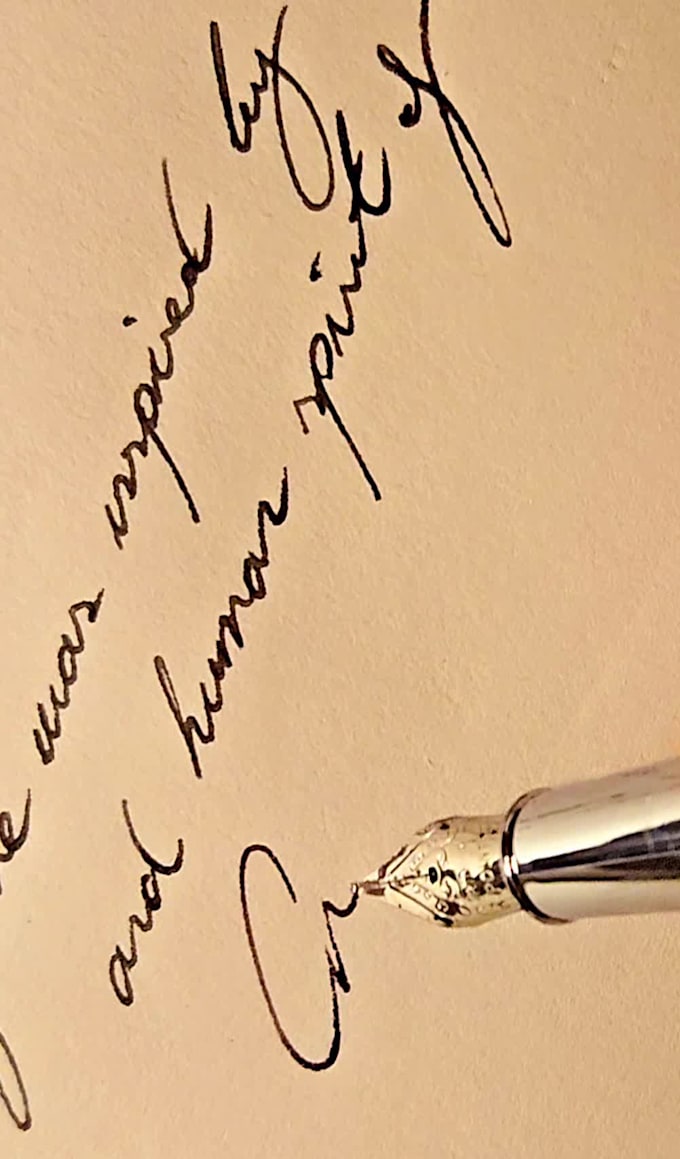 was inspired by
and human spirit of
Cr